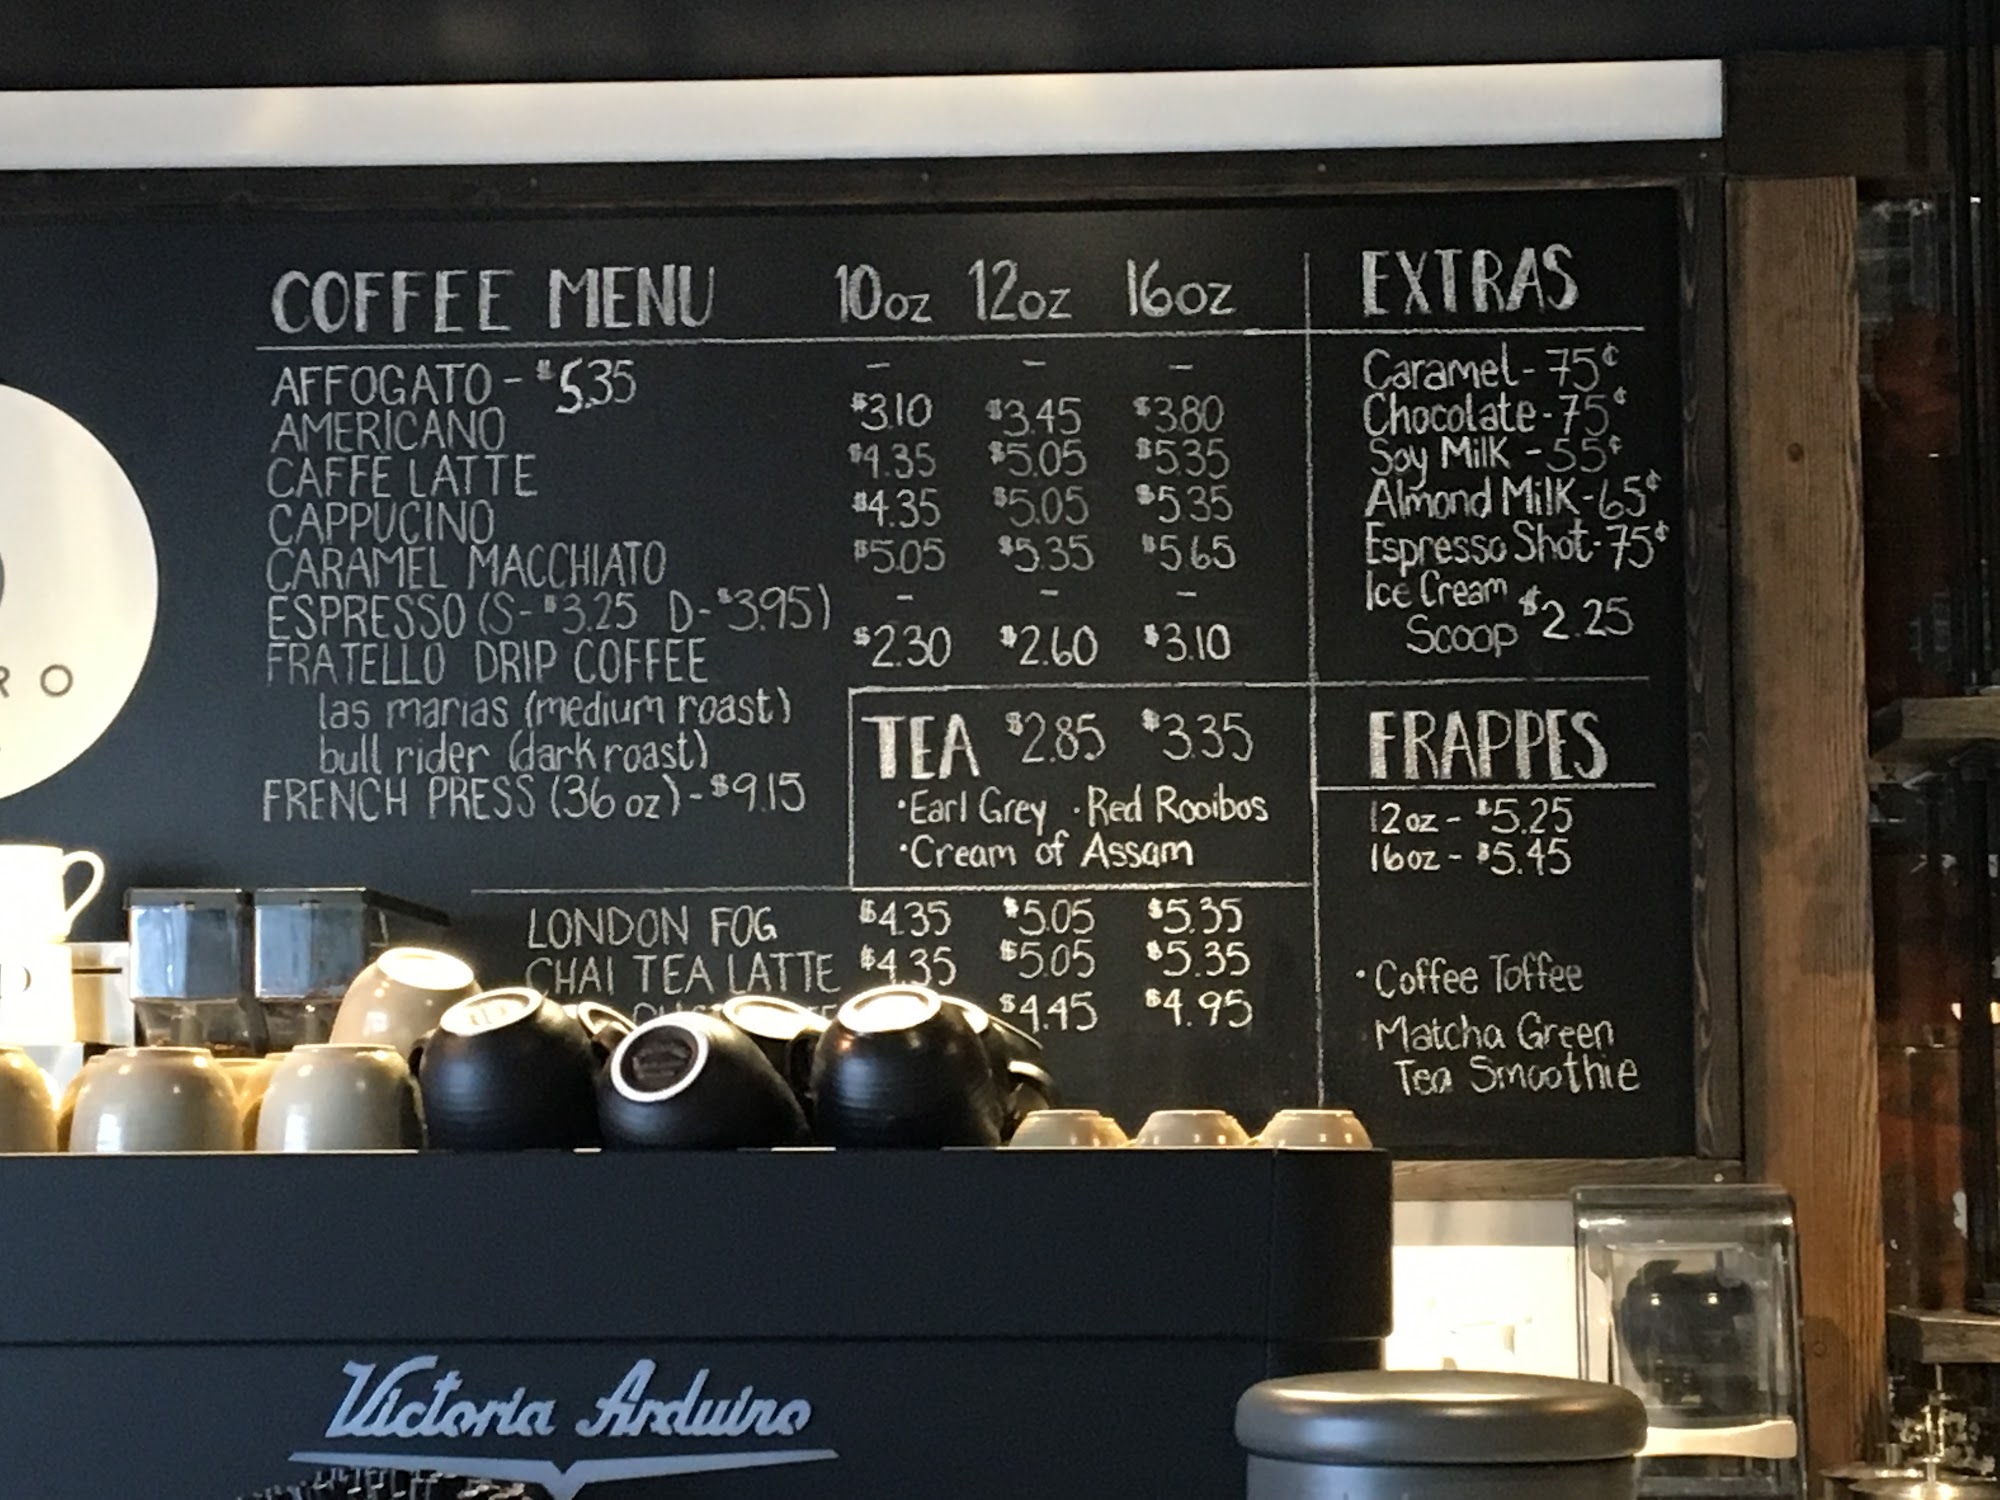 COFFEE MENU 10oz 12oz 16oz
AFFOGATO - $5.35 - - -
AMERICANO $3.10 $3.45 $3.80
CAFFE LATTE $4.35 $5.05 $5.35
CAPPUCINO $4.35 $5.05 $5.35
CARAMEL MACCHIATO $5.05 $5.35 $5.65
ESPRESSO (S-$3.25 D-$3.95) - - -
FRATELLO DRIP COFFEE $2.30 $2.60 $3.10
las marias (medium roast)
bull rider (dark roast)
FRENCH PRESS (36 oz) - $9.15
TEA $2.85 $3.35
·Earl Grey ·Red Rooibos
·Cream of Assam
LONDON FOG $4.35 $5.05 $5.35
CHAI TEA LATTE $4.35 $5.05 $5.35
$4.45 $4.95
EXTRAS
Caramel - 75¢
Chocolate - 75¢
Soy Milk - 55¢
Almond Milk - 65¢
Espresso Shot - 75¢
Ice Cream
Scoop $2.25
FRAPPES
12oz - $5.25
16oz - $5.45
·Coffee Toffee
Matcha Green
Tea Smoothie
RO
Victoria Arduino